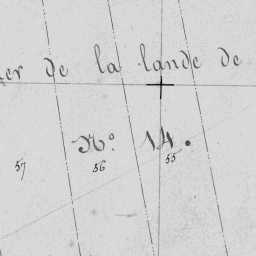 er de la lande de
N.º 14.
57 56 55